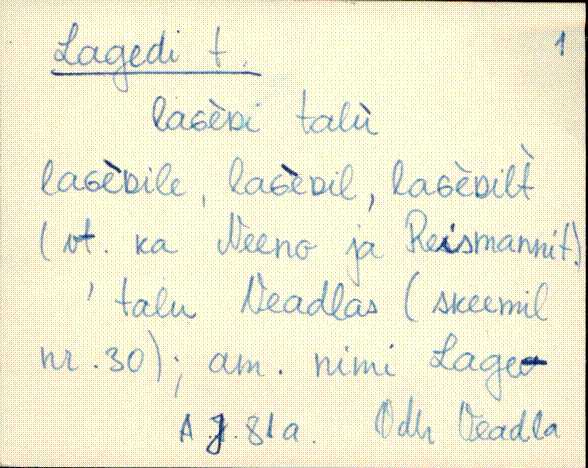 Lagedi t. 1
laɢèᴅi talù
laɢèᴅile, laɢèᴅil, laɢèᴅilt̀
(vt. ka Neeno ja Reismannit.)
' talu Neadlas (skeemil
nr. 30); am. nimi Lage
A.J. 81a. Odh Neadla